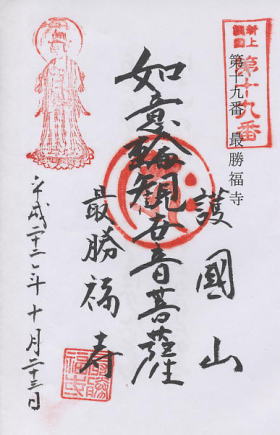 第十九番
第十九番 最勝福寺
護國山
如意輪観世音菩薩
最勝福寺
平成二十二年十月二十三日